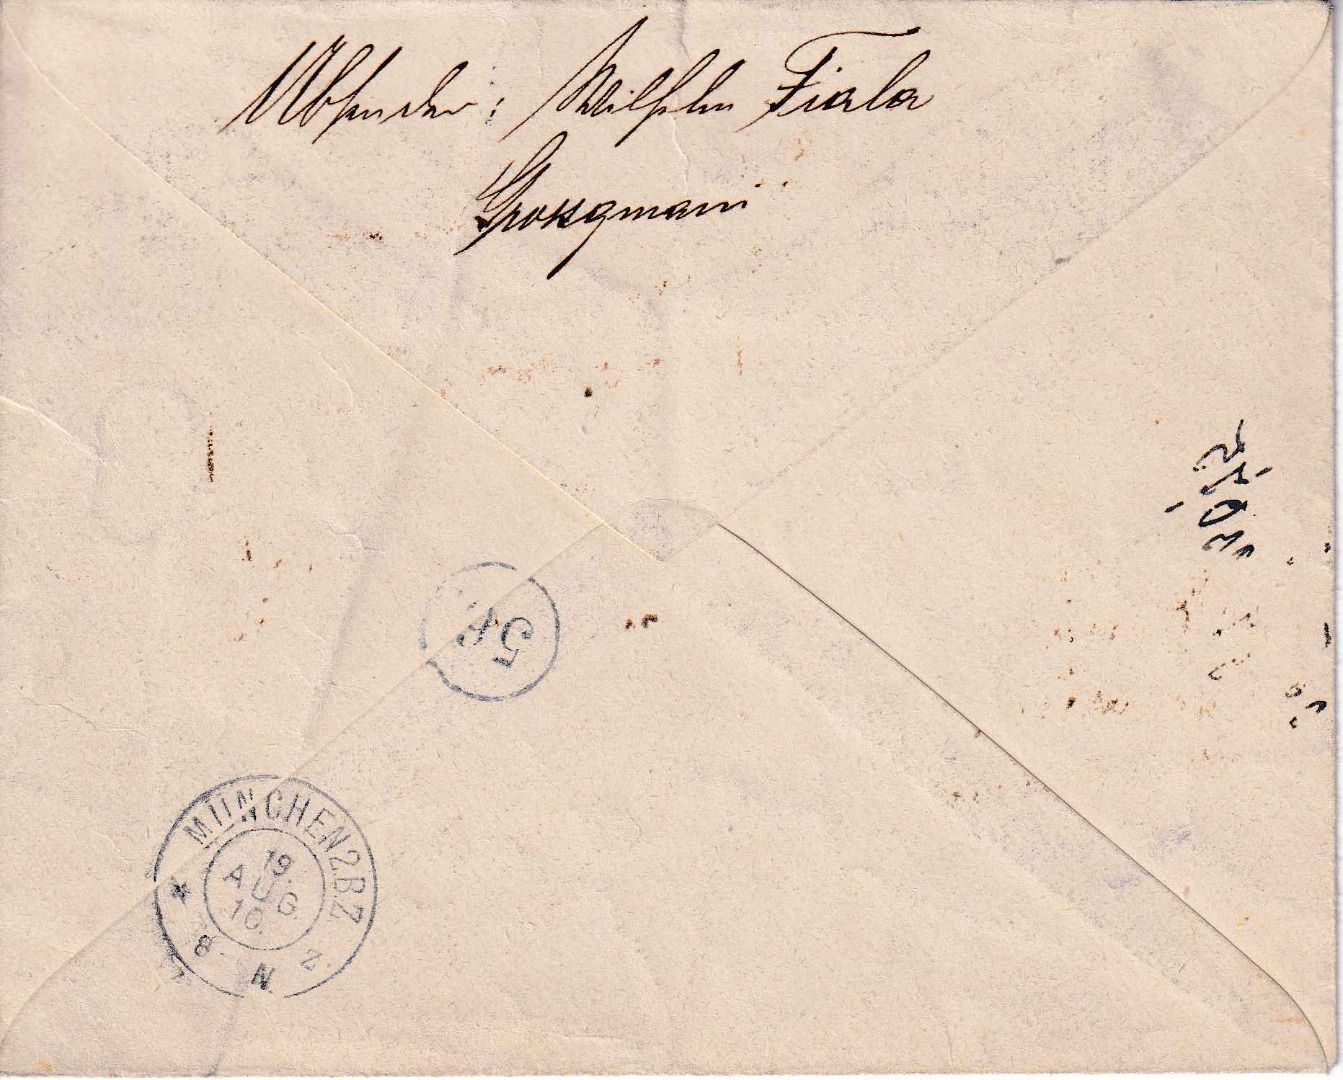 Absender: Wilhelm Fiala
Grossgmain
5 F.
MÜNCHEN 2 B.Z.
19.
AUG
10.
8-
N
Z